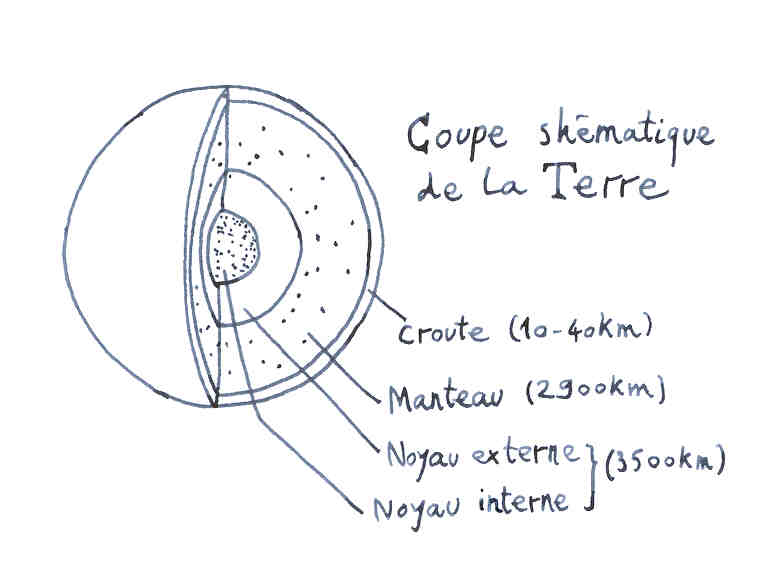 Coupe shēmatique
de La Terre
croute (10-40km)
Manteau (2900km)
Noyau externe
(3500km)
Noyau interne